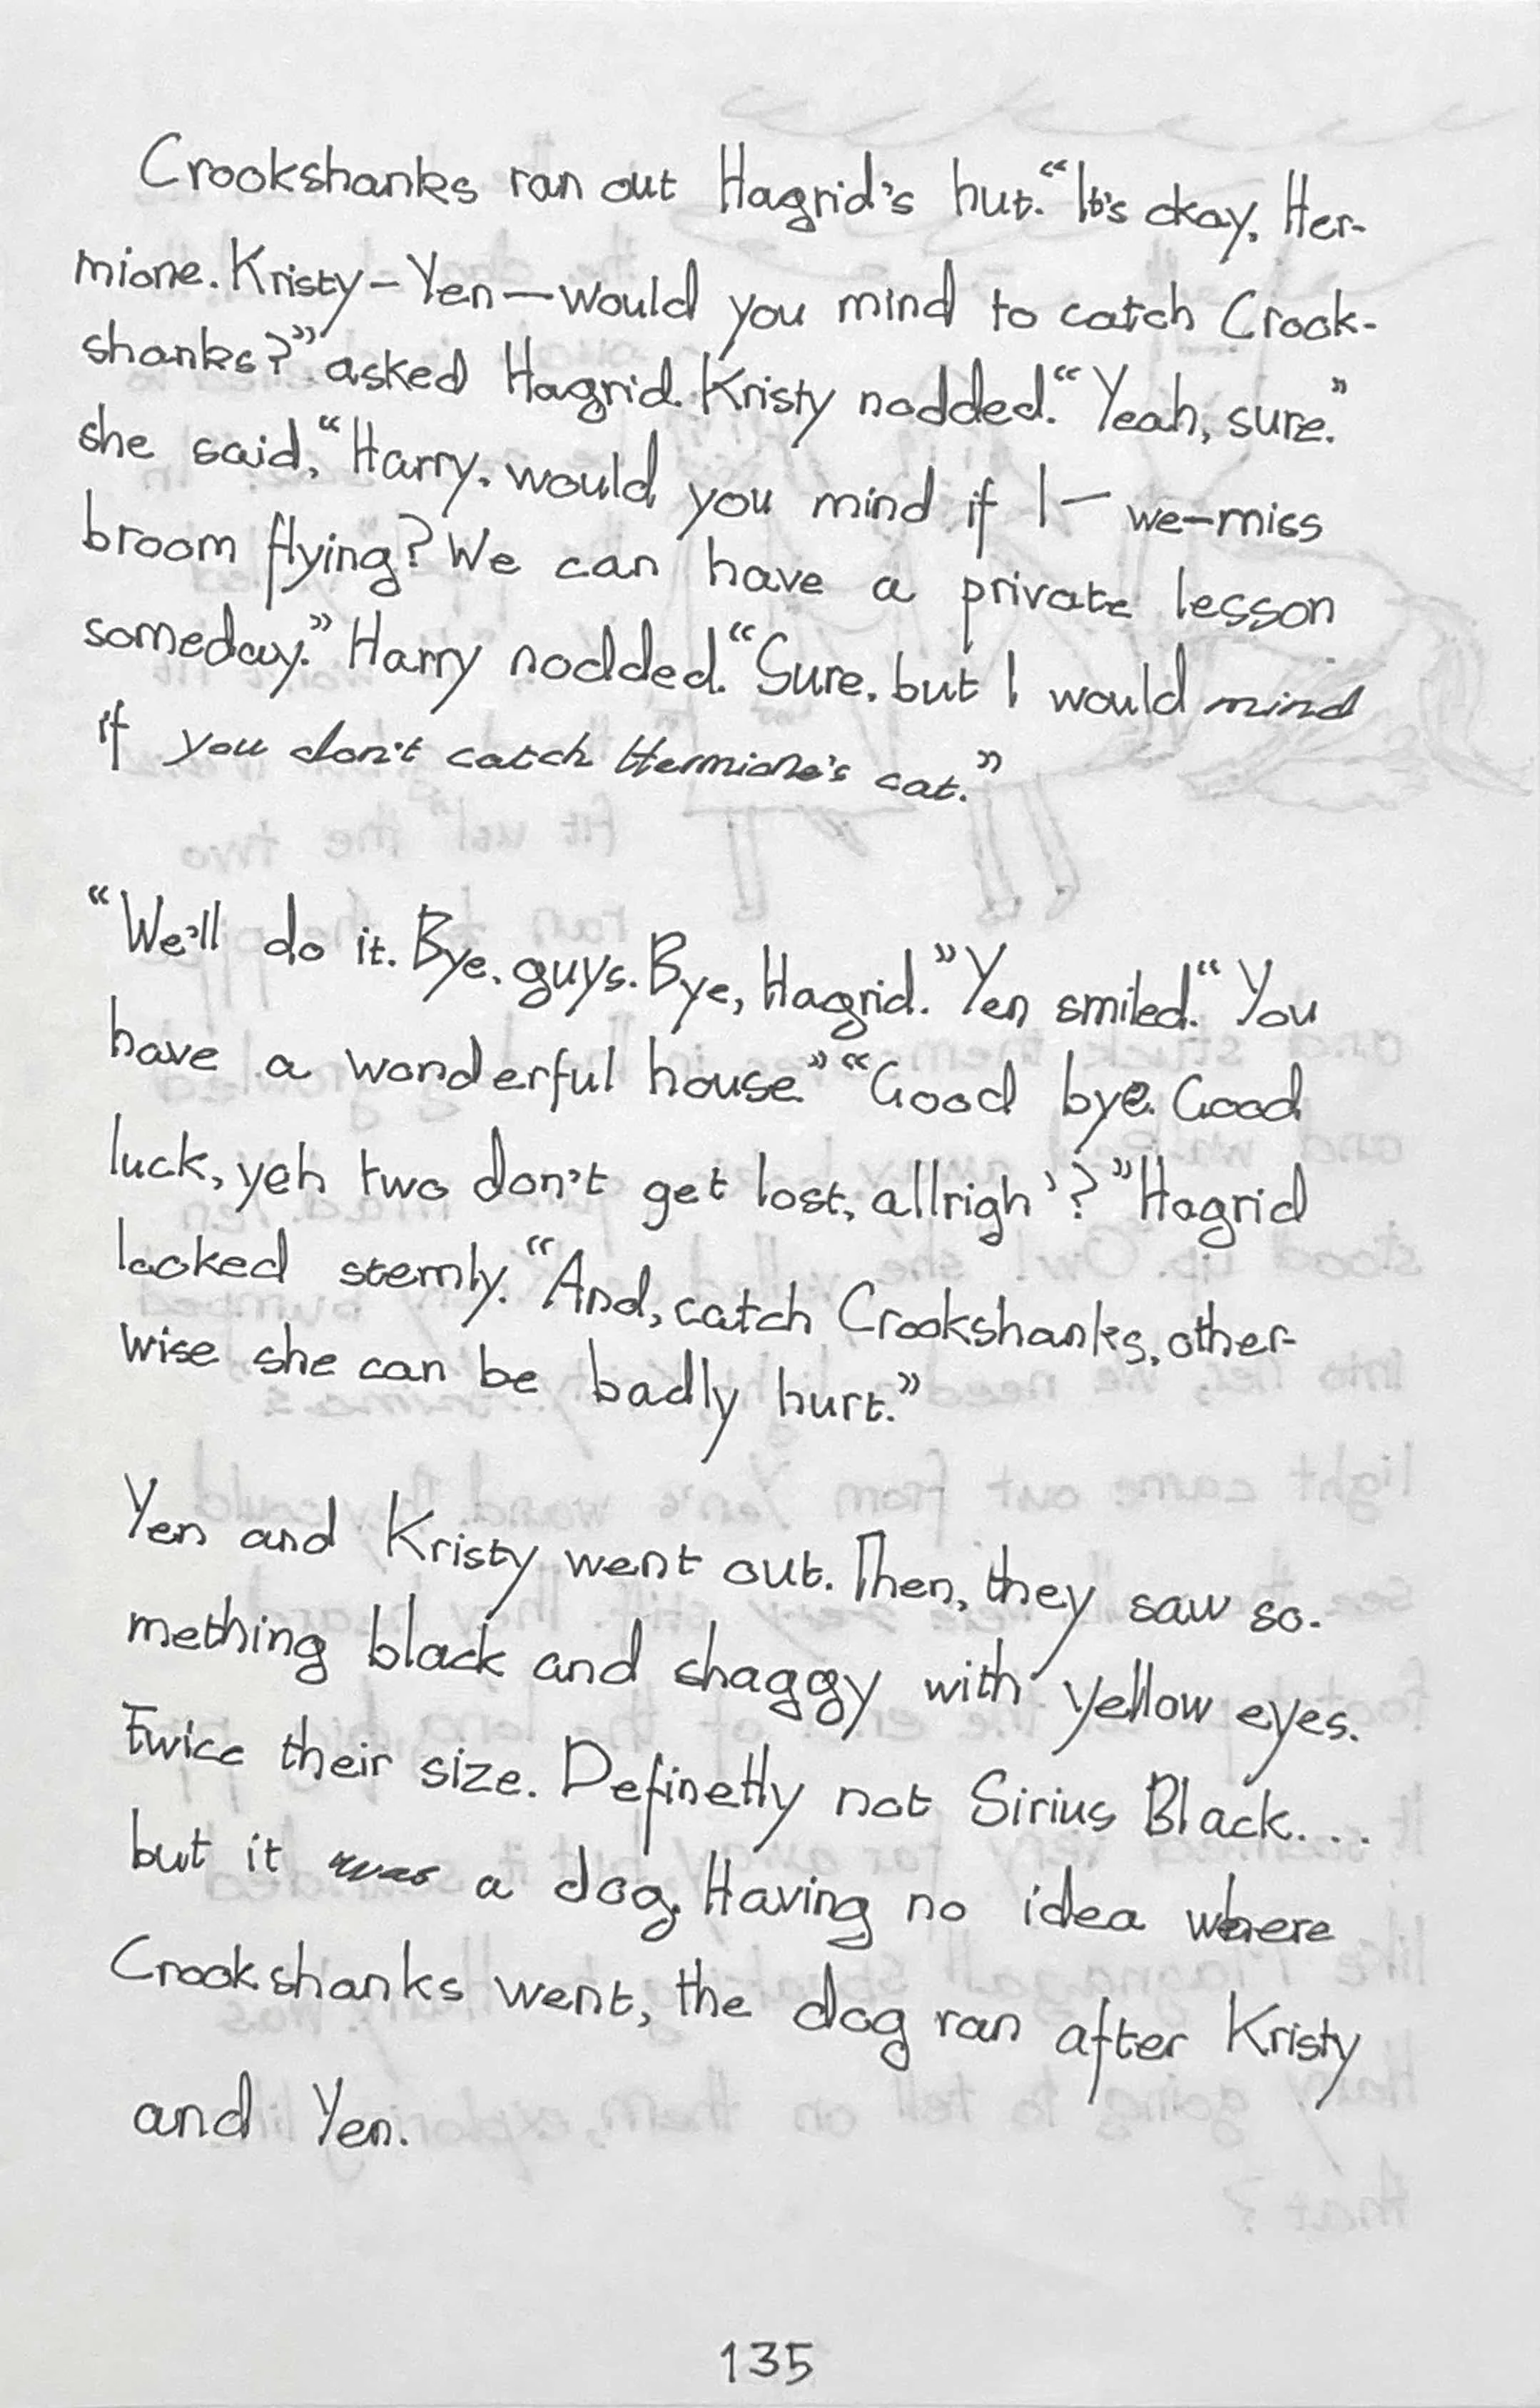 Crookshanks ran out Hagrid's hut. "It's okay, Her-
mione. Kristy – Yen – would you mind to catch Crook-
shanks?" asked Hagrid. Kristy nodded. "Yeah, sure."
she said, "Harry, would you mind if I – we – miss
broom flying? We can have a private lesson
someday." Harry nodded. "Sure, but I would mind
if you don't catch Hermione's cat."
"We'll do it. Bye, guys. Bye, Hagrid." Yen smiled. "You
have a wonderful house." "Good bye. Good
luck, yeh two don't get lost, allrigh'?" Hagrid
looked sternly. "And, catch Crookshanks, other-
wise she can be badly hurt."
Yen and Kristy went out. Then, they saw so-
mething black and shaggy with yellow eyes.
Twice their size. Definetly not Sirius Black....
but it was a dog. Having no idea where
Crookshanks went, the dog ran after Kristy
and Yen.
135